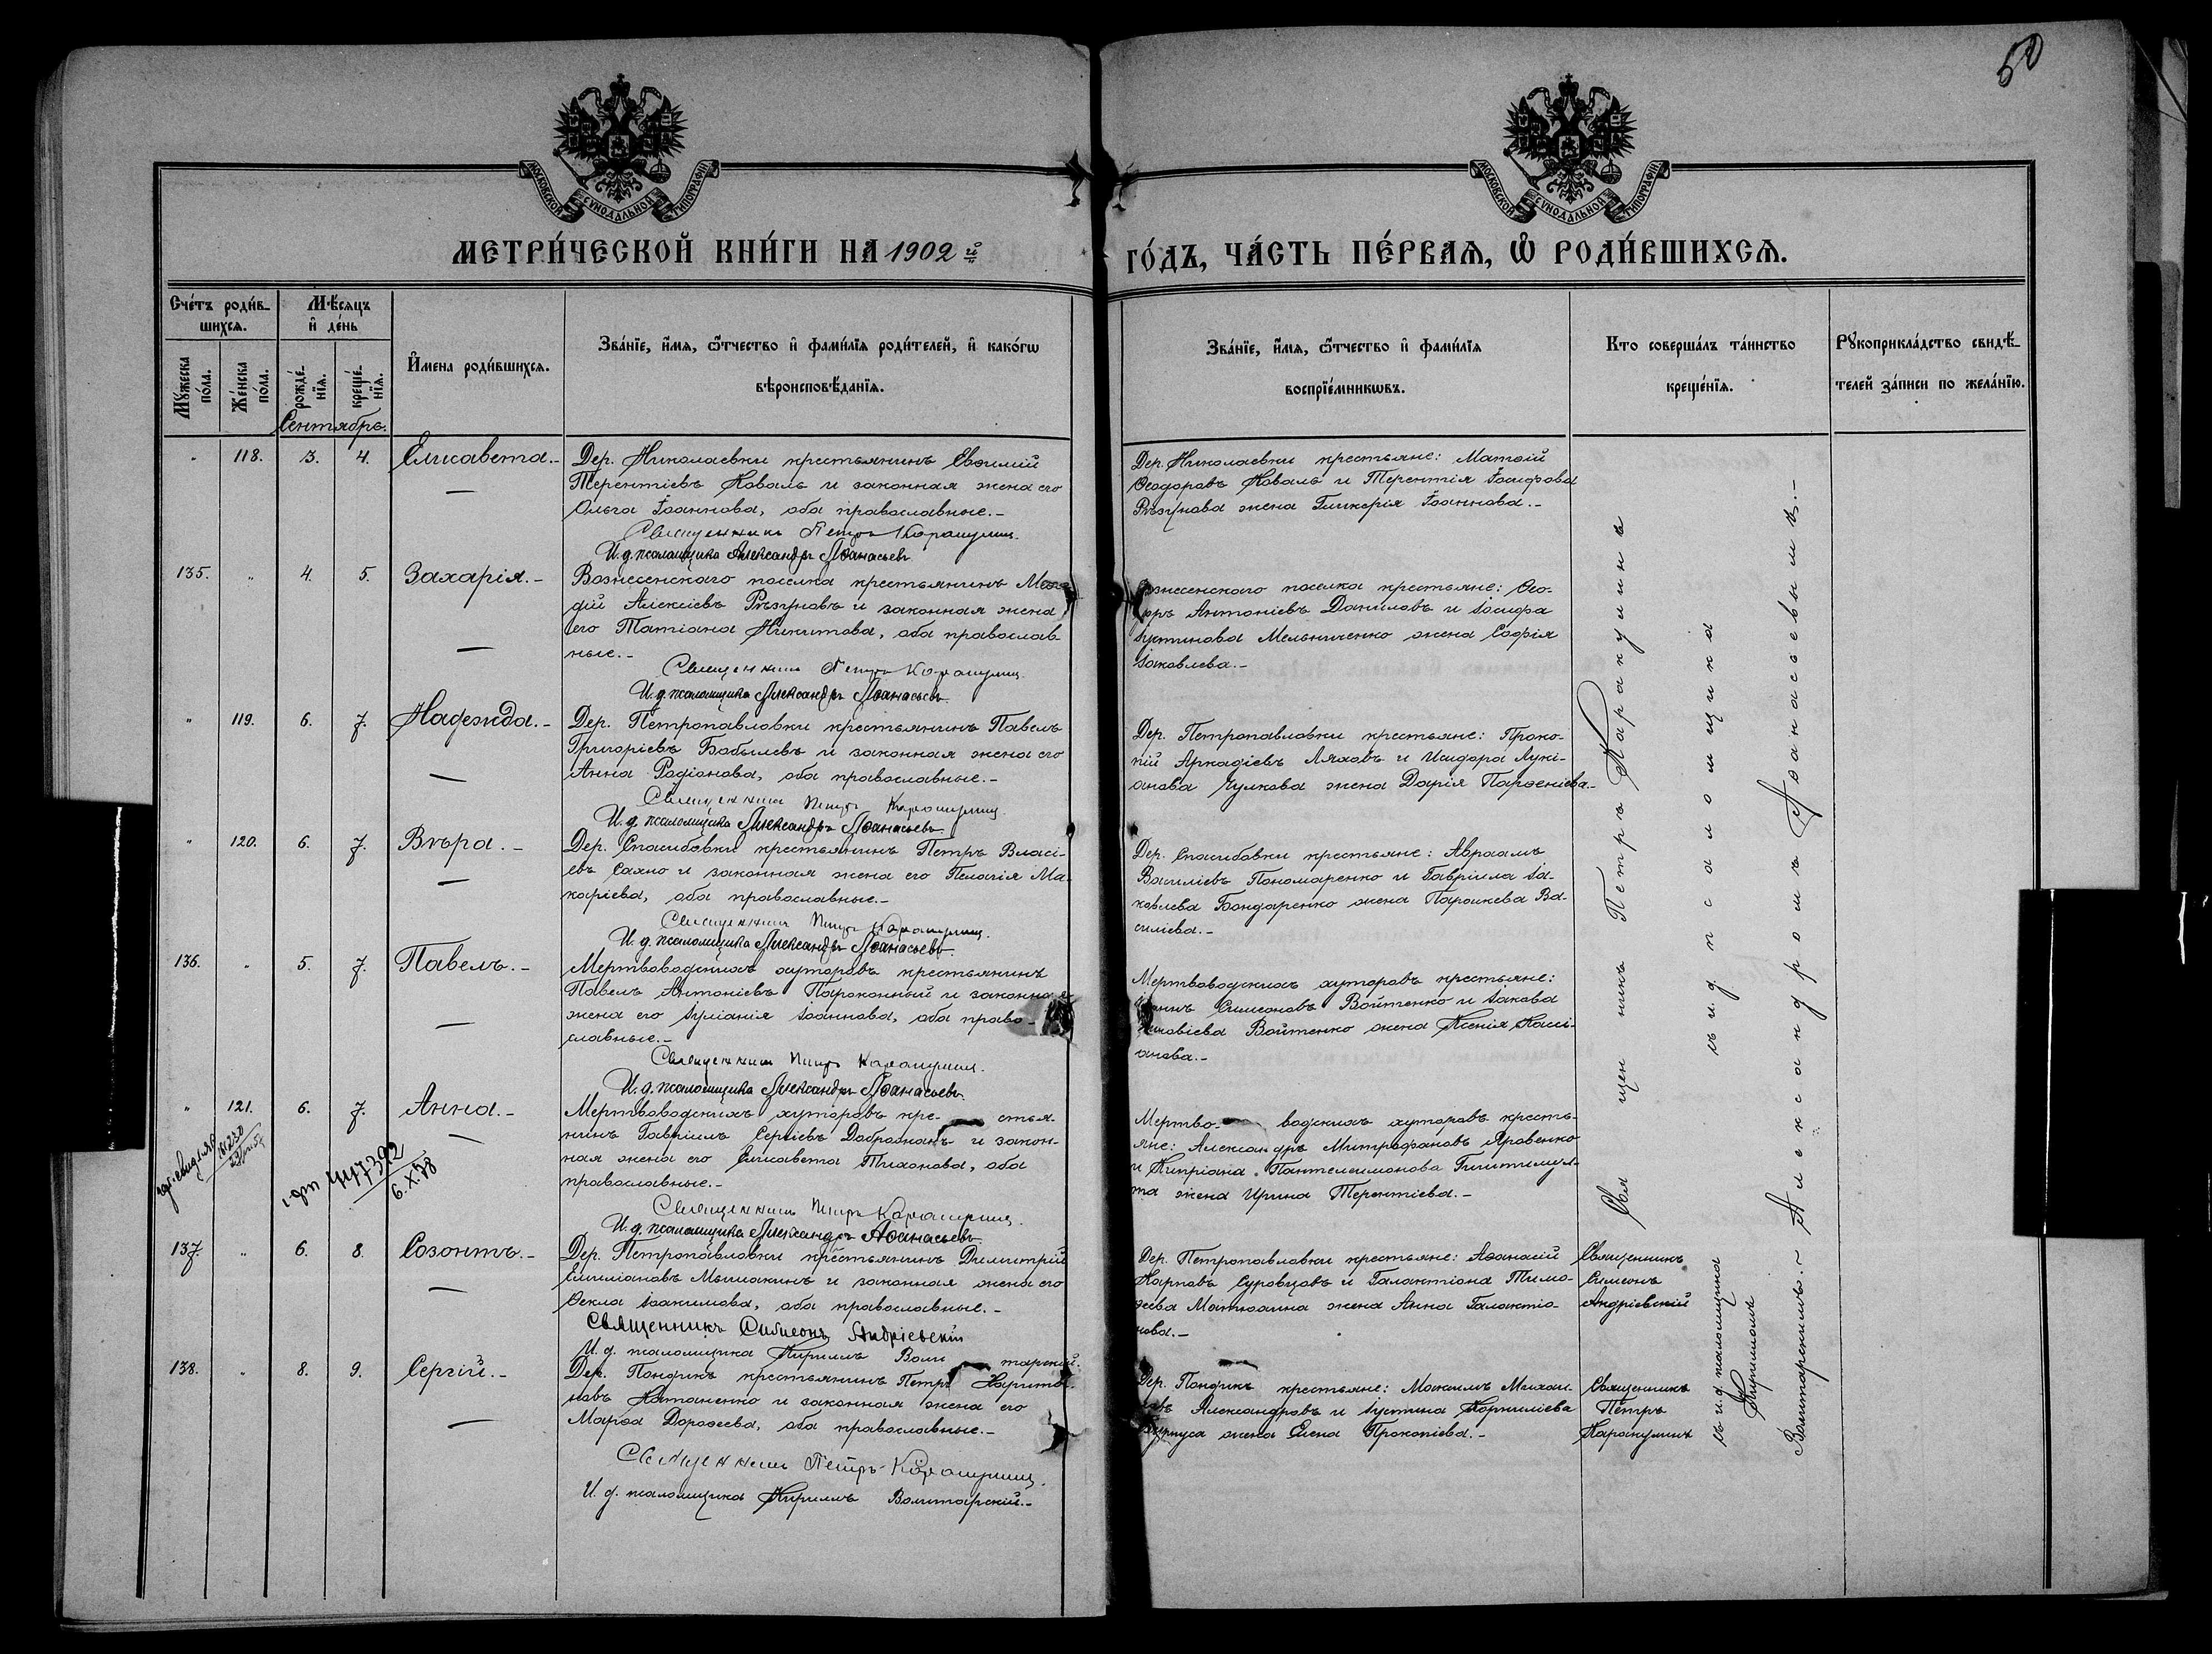 50
МОСКОВСКОЙ СѴНОДАЛЬНОЙ ТИПОГРАФІИ.
МОСКОВСКОЙ СѴНОДАЛЬНОЙ ТИПОГРАФІИ.
МЕТРИ́ЧЕСКОЙ КНИ́ГИ НА 1902й
ГО́ДЪ, ЧА́СТЬ ПЕ́РВАѦ, Ѽ РОДИ́ВШИХСѦ.
Сче́тъ роди́в-
шихсѧ.
Мѣ́сяцъ
и҆ де́нь
Мꙋжеска по́ла.
Же́нска по́ла.
рожде́-нїѧ.
креще́-нїѧ.
И҆мена роди́вшихсѧ.
Зва́нїе, и҆́мѧ, ѻ҆́тчество и҆ фами́лїѧ роди́телей, и҆ како́гѡ
вѣроисповѣ́данїѧ.
Зва́нїе, и҆́мѧ, ѻ҆́тчество и҆ фами́лїѧ
воспрїе́мникѡвъ.
Кто соверша́лъ та́инство
креще́нїѧ.
Рꙋкоприкла́дство свидѣ́-
телей за́писи по жела́нїю.
Сентябрь.
" 118. 3. 4. Елисавета.-
Дер. Николаевки крестьянинъ Евѳимій
Терентіевъ Коваль и законная жена его
Ольга Іоаннова, оба православные.-
Священникъ Петръ Каракулинъ
И. д. псаломщика Александръ Аѳанасьевъ
Дер. Николаевки крестьяне: Матѳій
Ѳеодоровъ Коваль и Терентія Іосифова
Рѣзунова жена Гликерія Іоаннова.-
135. " 4. 5. Захарія.-
Вознесенскаго поселка крестьянинъ
дій Алексіевъ Рѣзуновъ и законная жена
его Татіана Никитова, оба православ
ные.-
Священникъ Петръ Каракулинъ
И. д. псаломщика Александръ Аѳанасьевъ
ознесенскаго поселка крестьяне: Ѳео-
оръ Антоніевъ Даниловъ и Іосифа
Іустинова Мельниченко жена Софія
Іаковлева.-
" 119. 6. 7. Надежда.-
Дер. Петропавловки крестьянинъ Павелъ
Григоріевъ Бобылевъ и законная жена его
Анна Родіонова, оба православные.-
Священникъ Петръ Каракулинъ
И. д. псаломщика Александръ Аѳанасьевъ
Дер. Петропавловки крестьяне: Проко-
пій Аркадіевъ Ляховъ и Исидора Лукі-
анова Чулкова жена Дарія Парѳеніева.-
" 120. 6. 7. Вѣра.-
Дер. Спасибовки крестьянинъ Петръ Власі-
евъ Сахно и законная жена его Пелагія Ма-
каріева, оба православные.-
Священникъ Петръ Каракулинъ
И. д. псаломщика Александръ Аѳанасьевъ
Дер. Спасибовки крестьяне: Авраамъ
Василіевъ Пономаренко и Гавріила Іа-
ковлева Бондаренко жена Параскева Ва-
силіева.-
136. " 5. 7. Павелъ.-
Мертвоводскихъ хуторовъ крестьянинъ
Павелъ Антоніевъ Пароконный и законная
жена его Іуліанія Іоаннова, оба право-
славные.-
Священникъ Петръ Каракулинъ
И. д. псаломщика Александръ Аѳанасьевъ
Мертвоводскихъ хуторовъ крестьяне:
Симеоновъ Войтенко и Іакова
Войтенко жена Ксенія Кассі-
анова.-
" 121. 6. 7. Анна.-
Мертвоводскихъ хуторовъ кре- стья-
нинъ Гавріилъ Сергіевъ и закон-
ная жена его Елисавета Тихонова, оба
православные.-
Священникъ Петръ Каракулинъ
И. д. псаломщика Александръ Аѳанасьевъ
Мертво- водскихъ хуторовъ кресть-
яне: Александръ Митрофановъ Яровенко
и Кипріана Пантелеимонова
жена Ирина Терентіева.-
6.X.78
137. " 6. 8. Созонтъ.-
Дер. Петропавловки крестьянинъ Димитрій
Емиліановъ Мышакинъ и законная жена его
Ѳекла Іоакимова, оба православные.-
Священникъ Симеонъ Андріевскій
И. д. псаломщика Кириллъ Волитарскій.
Дер. Петропавловки крестьяне: Аѳанасій
Карповъ Суровцовъ и Галактіона Тимо-
ѳеева Матюшина жена Анна Галактіо-
нова.-
Священникъ
Симеонъ
Андріевскій
138. " 8. 9. Сергій.-
Дер. Пондикъ крестьянинъ Петръ Харито-
новъ Натаненко и законная жена его
Марѳа Дороѳеева, оба православные.-
Священникъ Петръ Каракулинъ
И. д. псаломщика Кириллъ Волитарскій.-
Дер. Пондикъ крестьяне: Максимъ Михаи-
Александровъ и Іустина Корниліева
жена Елена Прокопіева.-
Священникъ
Петръ
Каракулинъ
Священникъ Петръ Каракулинъ
съ и. д. псаломщика
Александромъ Аѳанасьевымъ.-
съ и. д. псаломщика
Кирилломъ
Волитарскимъ.-